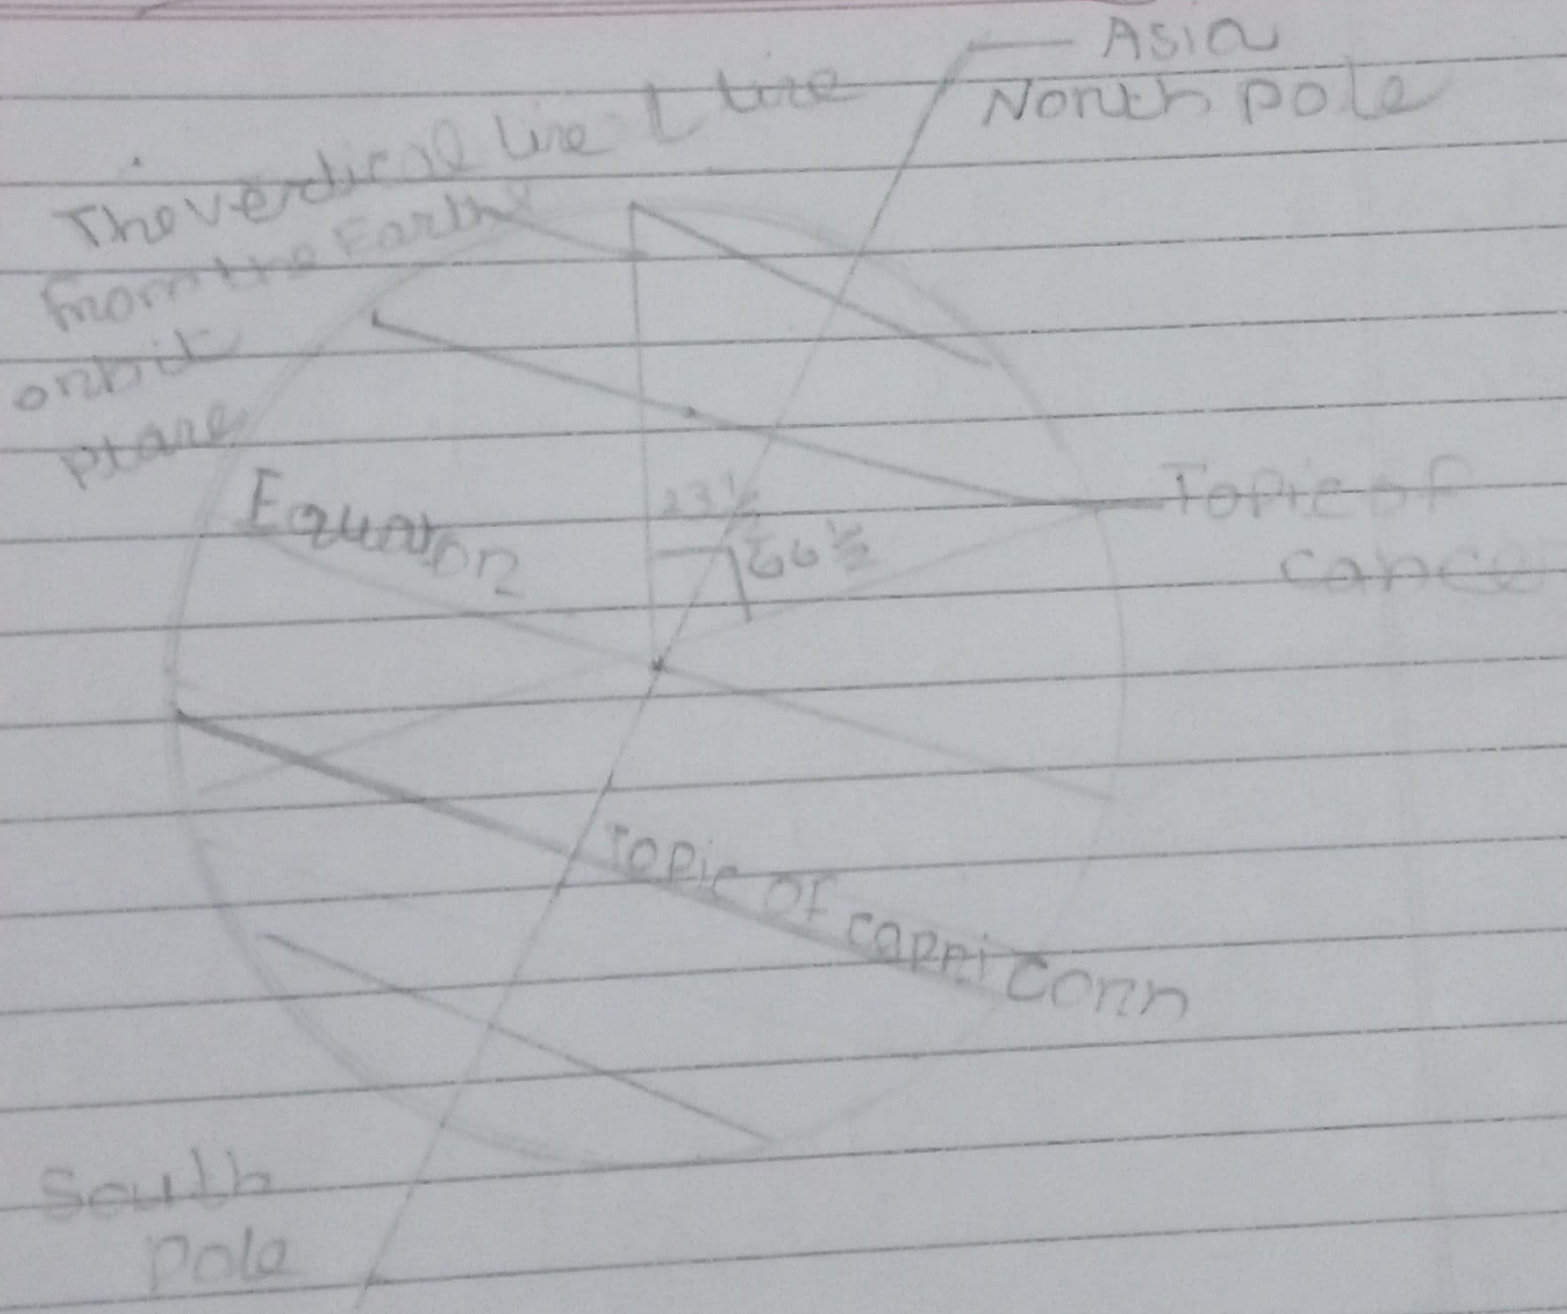 Asia
North pole
The verdical line ⊥ line
from the Earth
orbit
plane
Equator
23½
66½
Topic of
cance
Topic of capricorn
South
pole